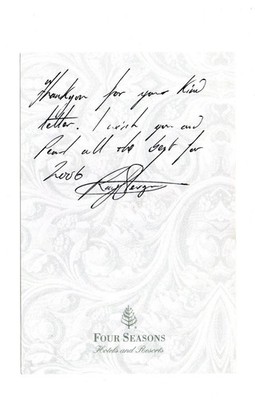 Thankyou for your kind
letter. I wish you and
Pearl all the best for
2006
FOUR SEASONS
Hotels and Resorts